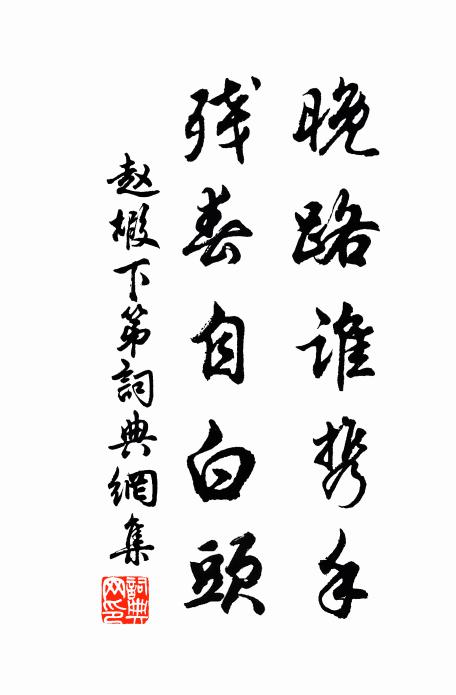 晚路谁携手
残春自白頭
赵嘏下第詞典網集
詞典网印